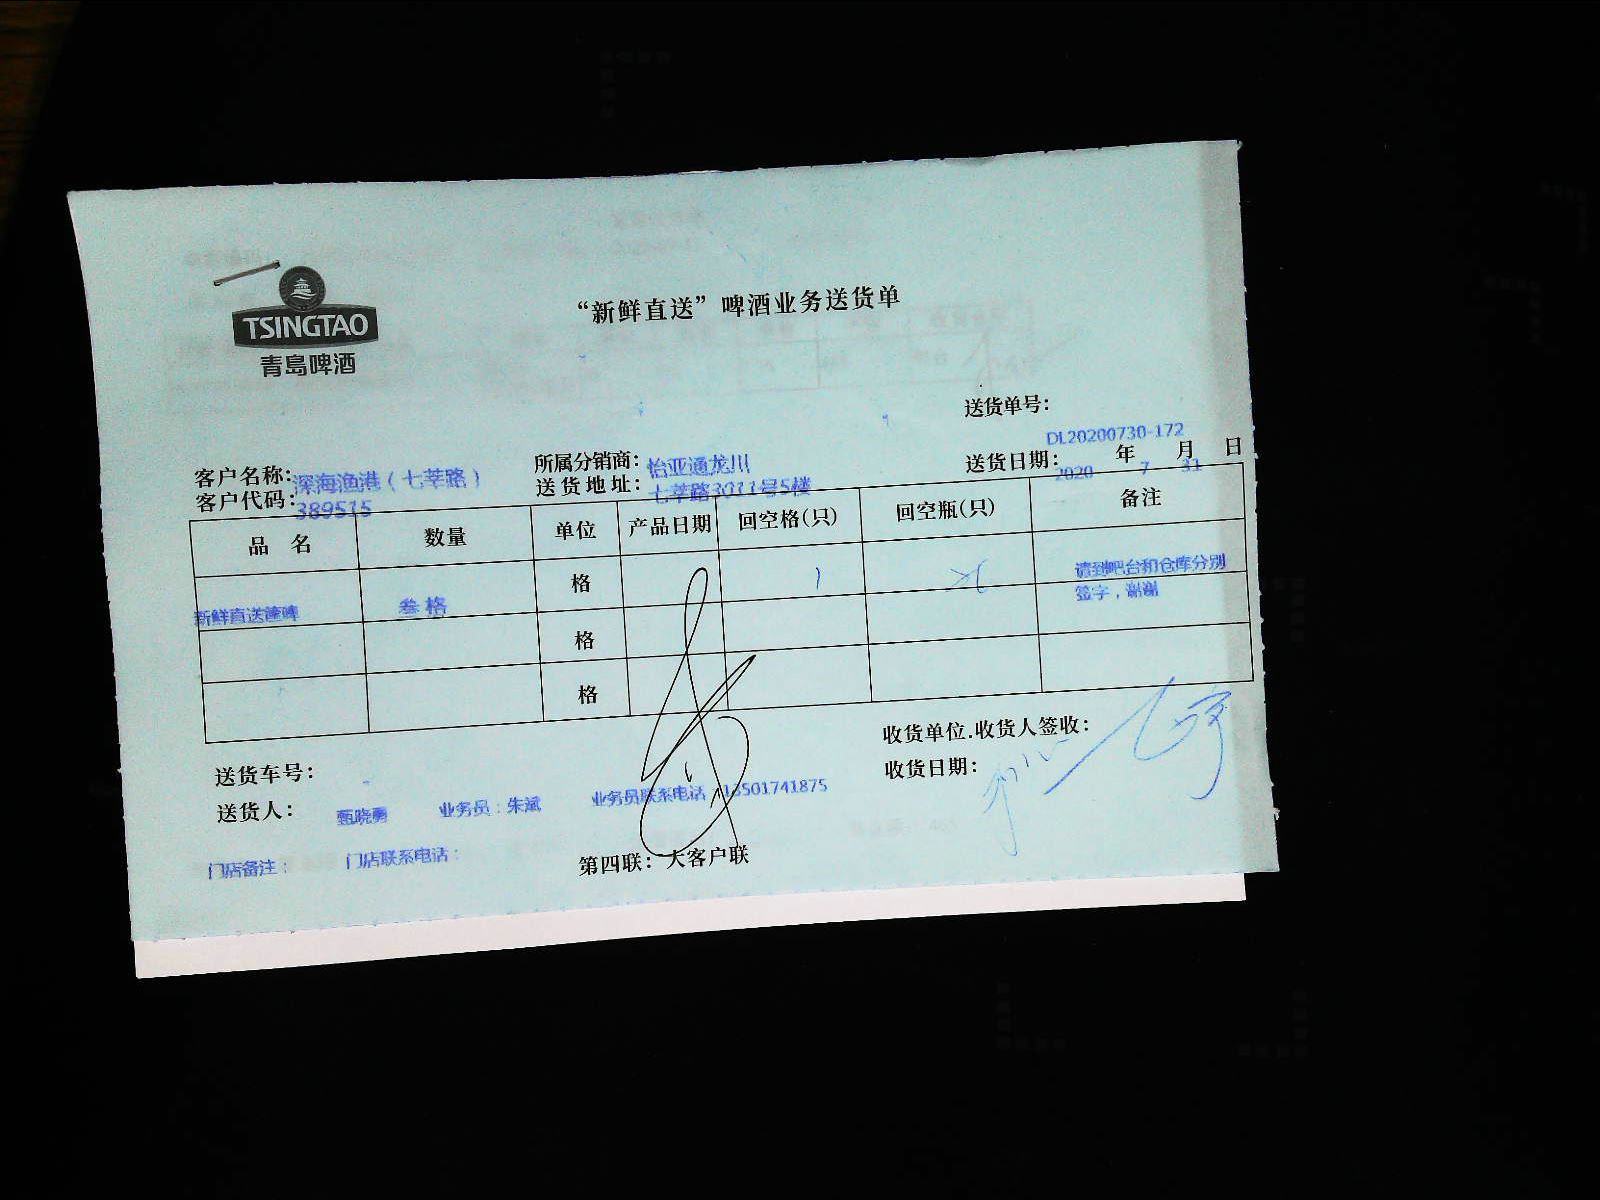 TSINGTAO
青島啤酒
“新鲜直送”啤酒业务送货单
送货单号：
DL20200730-172
客户名称：深海渔港（七莘路） 所属分销商：怡亚通龙川 送货日期：2020 年 7 月 31 日
客户代码：389515 送货地址：七莘路3011号5楼
品 名 数量 单位 产品日期 回空格(只) 回空瓶(只) 备注
新鲜直送篷啤 叁格 格 1 请到吧台和仓库分别
签字，谢谢
格
格
收货单位.收货人签收：
送货车号： 收货日期：
送货人：甄晓勇 业务员：朱斌 业务员联系电话：13501741875
门店备注： 门店联系电话： 第四联：大客户联